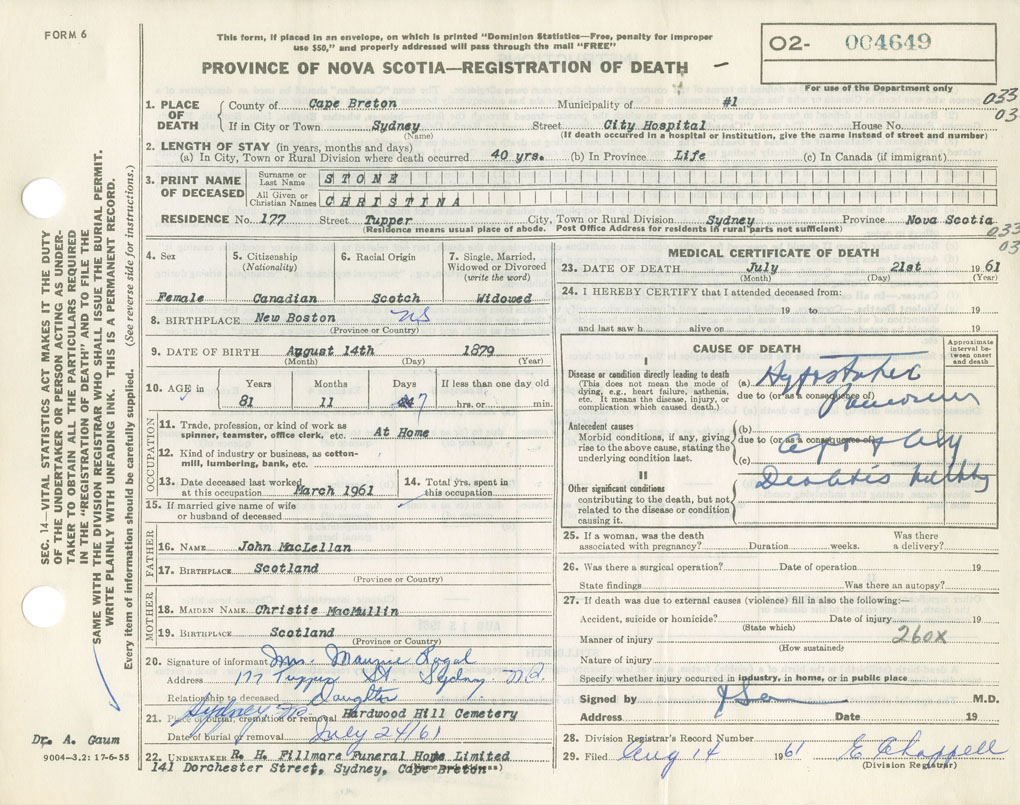 FORM 6
This form, if placed in an envelope, on which is printed "Dominion Statistics—Free, penalty for improper
use $50," and properly addressed will pass through the mail "FREE"
PROVINCE OF NOVA SCOTIA—REGISTRATION OF DEATH
O2- 004649
For use of the Department only
033
03
1. PLACE OF DEATH County of Cape Breton Municipality of #1
If in City or Town Sydney (Name) Street City Hospital House No.
(If death occurred in a hospital or institution, give the name instead of street and number)
2. LENGTH OF STAY (in years, months and days)
(a) In City, Town or Rural Division where death occurred 40 yrs. (b) In Province Life (c) In Canada (if immigrant)
3. PRINT NAME OF DECEASED
Surname or Last Name STONE
All Given or Christian Names CHRISTINA
RESIDENCE No. 177 Street Tupper City, Town or Rural Division Sydney Province Nova Scotia
(Residence means usual place of abode. Post Office Address for residents in rural parts not sufficient)
033
03
4. Sex Female
5. Citizenship (Nationality) Canadian
6. Racial Origin Scotch
7. Single, Married, Widowed or Divorced (write the word) Widowed
8. BIRTHPLACE New Boston NS
(Province or Country)
9. DATE OF BIRTH August 14th 1879
(Month) (Day) (Year)
10. AGE in Years Months Days If less than one day old
81 11 7 hrs. or min.
OCCUPATION
11. Trade, profession, or kind of work as
spinner, teamster, office clerk, etc. At Home
12. Kind of industry or business, as cotton-
mill, lumbering, bank, etc.
13. Date deceased last worked
at this occupation March 1961
14. Total yrs. spent in
this occupation
15. If married give name of wife
or husband of deceased
FATHER
16. NAME John MacLellan
17. BIRTHPLACE Scotland
(Province or Country)
MOTHER
18. MAIDEN NAME Christie MacMullin
19. BIRTHPLACE Scotland
(Province or Country)
20. Signature of informant Mrs. Maurice
Address 177 Tupper St. Sydney N.S.
Relationship to deceased Daughter
21. Place of burial, cremation or removal Sydney NS Hardwood Hill Cemetery
Date of burial or removal July 24/61
22. UNDERTAKER R. H. Fillmore Funeral Home Limited
141 Dorchester Street, Sydney, Cape Breton
(Name and address)
MEDICAL CERTIFICATE OF DEATH
23. DATE OF DEATH July 21st 1961
(Month) (Day) (Year)
24. I HEREBY CERTIFY that I attended deceased from:
19 to 19
and last saw h alive on 19
CAUSE OF DEATH
Approximate interval between onset and death
I
Disease or condition directly leading to death
(This does not mean the mode of
dying, e.g., heart failure, asthenia,
etc. It means the disease, injury, or
complication which caused death.)
(a) Hypostatic
due to (or as a consequence of)
Pneumonia
Antecedent causes
Morbid conditions, if any, giving
rise to the above cause, stating the
underlying condition last.
(b)
due to (or as a consequence of)
(c)
II
Other significant conditions
contributing to the death, but not
related to the disease or condition
causing it.
Diabetes
25. If a woman, was the death
associated with pregnancy? Duration weeks. Was there
a delivery?
26. Was there a surgical operation? Date of operation 19
State findings Was there an autopsy?
27. If death was due to external causes (violence) fill in also the following:—
Accident, suicide or homicide? Date of injury 19
(State which)
Manner of injury 260X
(How sustained)
Nature of injury
Specify whether injury occurred in industry, in home, or in public place
Signed by M.D.
Address Date 19
28. Division Registrar's Record Number
29. Filed Aug 14 1961 E. Chappell
(Division Registrar)
SEC. 14—VITAL STATISTICS ACT MAKES IT THE DUTY
OF THE UNDERTAKER OR PERSON ACTING AS UNDER-
TAKER TO OBTAIN ALL THE PARTICULARS REQUIRED
IN THE "REGISTRATION OF DEATH" AND TO FILE THE
SAME WITH THE DIVISION REGISTRAR WHO SHALL ISSUE THE BURIAL PERMIT.
WRITE PLAINLY WITH UNFADING INK. THIS IS A PERMANENT RECORD.
Every item of information should be carefully supplied. (See reverse side for instructions.)
Dr. A. Gaum
9004-3.2: 17-6-55